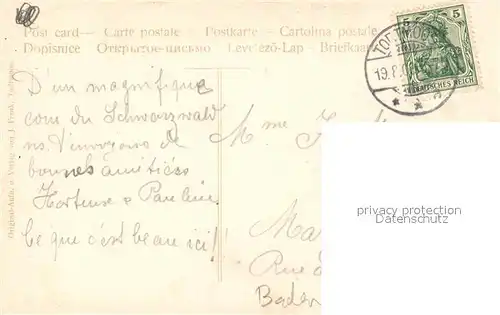 Post card — Carte postale Postkarte — Cartolina postale
Dopisnice Открытое-письмо Levelező-Lap — Briefkaart
5 5
DEUTSCHES REICH
19.8.0
D'un magnifique
coin du Schwarzwald
ns. t'envoyons de
bonnes amitiés
Hortense & Pauline
Ce que c'est beau ici!
Mme
Ma
Rue
Baden
privacy protection
VEIKKOS
Original-Aufn. u. Verlag von J. Frank, Todtmoos